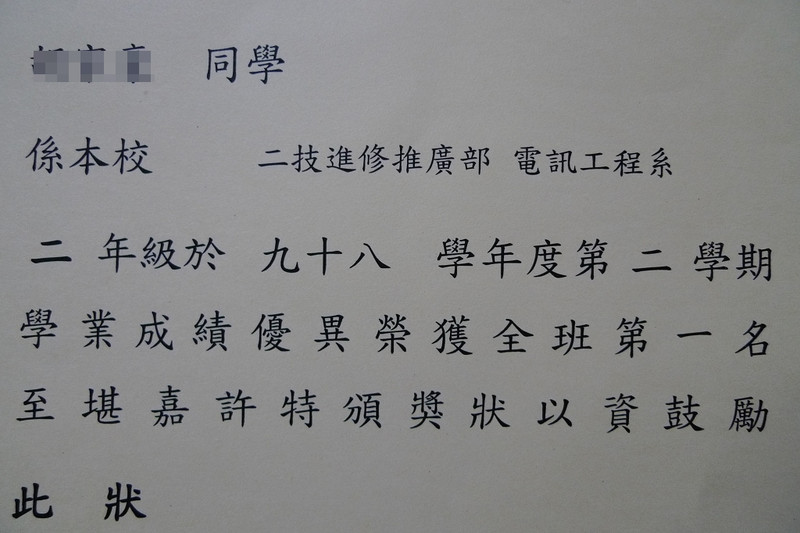 同學
係本校 二技進修推廣部 電訊工程系
二 年級於 九十八 學年度第 二 學期
學業成績優異榮獲全班第一名
至堪嘉許特頒獎狀以資鼓勵
此狀